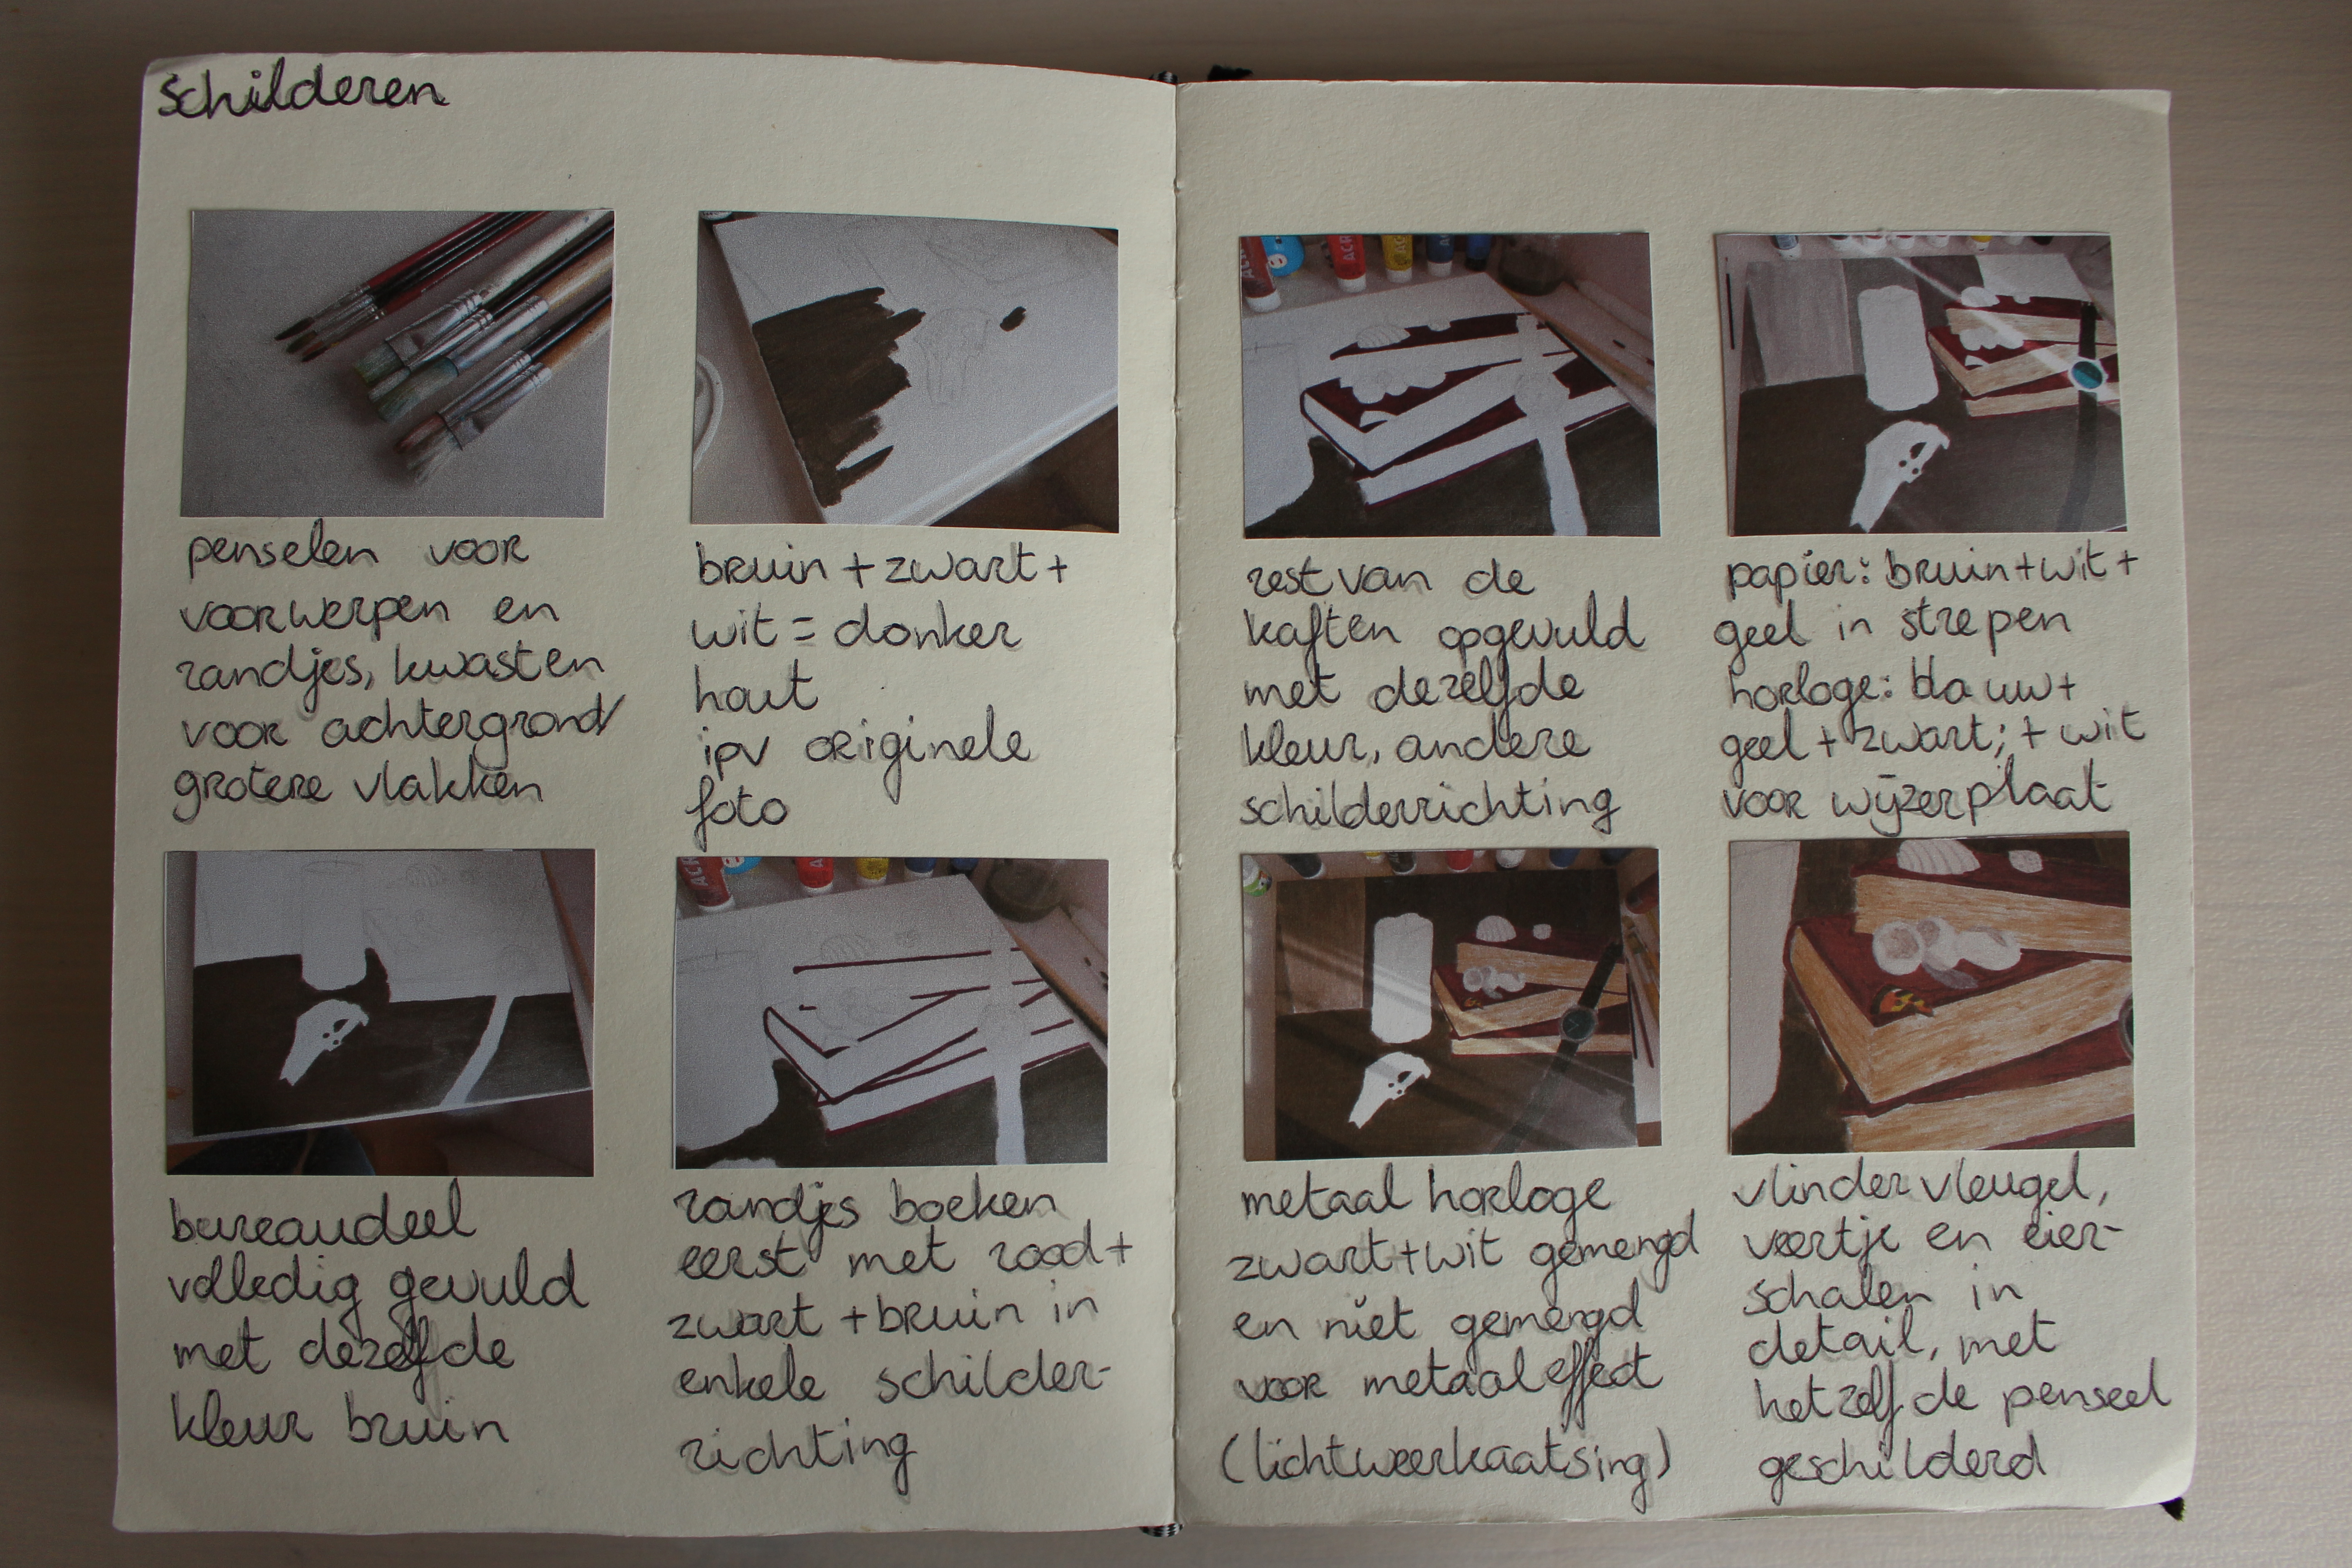 schilderen
penselen voor
voorwerpen en
randjes, kwasten
voor achtergrond/
grotere vlakken
bruin + zwart +
wit = donker
hout
ipv originele
foto
bureaudeel
volledig gevuld
met dezelfde
kleur bruin
randjes boeken
eerst met rood +
zwart + bruin in
enkele schilder-
richting
rest van de
kaften opgevuld
met dezelfde
kleur, andere
schilderrichting
papier: bruin + wit +
geel in strepen
horloge: blauw +
geel + zwart; + wit
voor wijzerplaat
metaal horloge
zwart + wit gemengd
en niet gemengd
voor metaaleffect
(lichtweerkaatsing)
vlindervleugel,
veertje en eier-
schalen in
detail, met
hetzelfde penseel
geschilderd